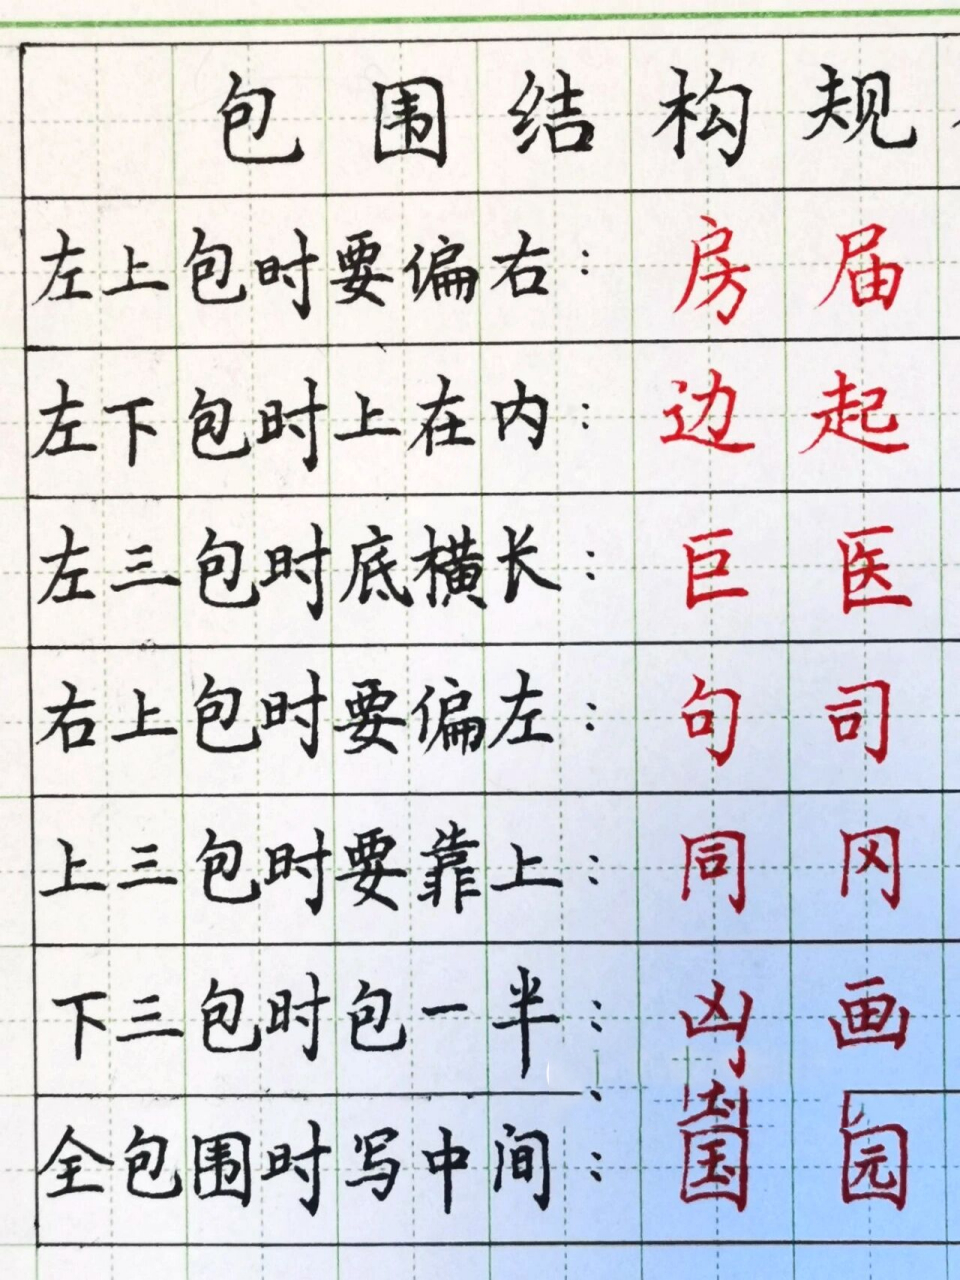 包围结构规
左上包时要偏右：房届
左下包时上在内：边起
左三包时底横长：巨医
右上包时要偏左：句司
上三包时要靠上：同冈
下三包时包一半：凶画
全包围时写中间：国园